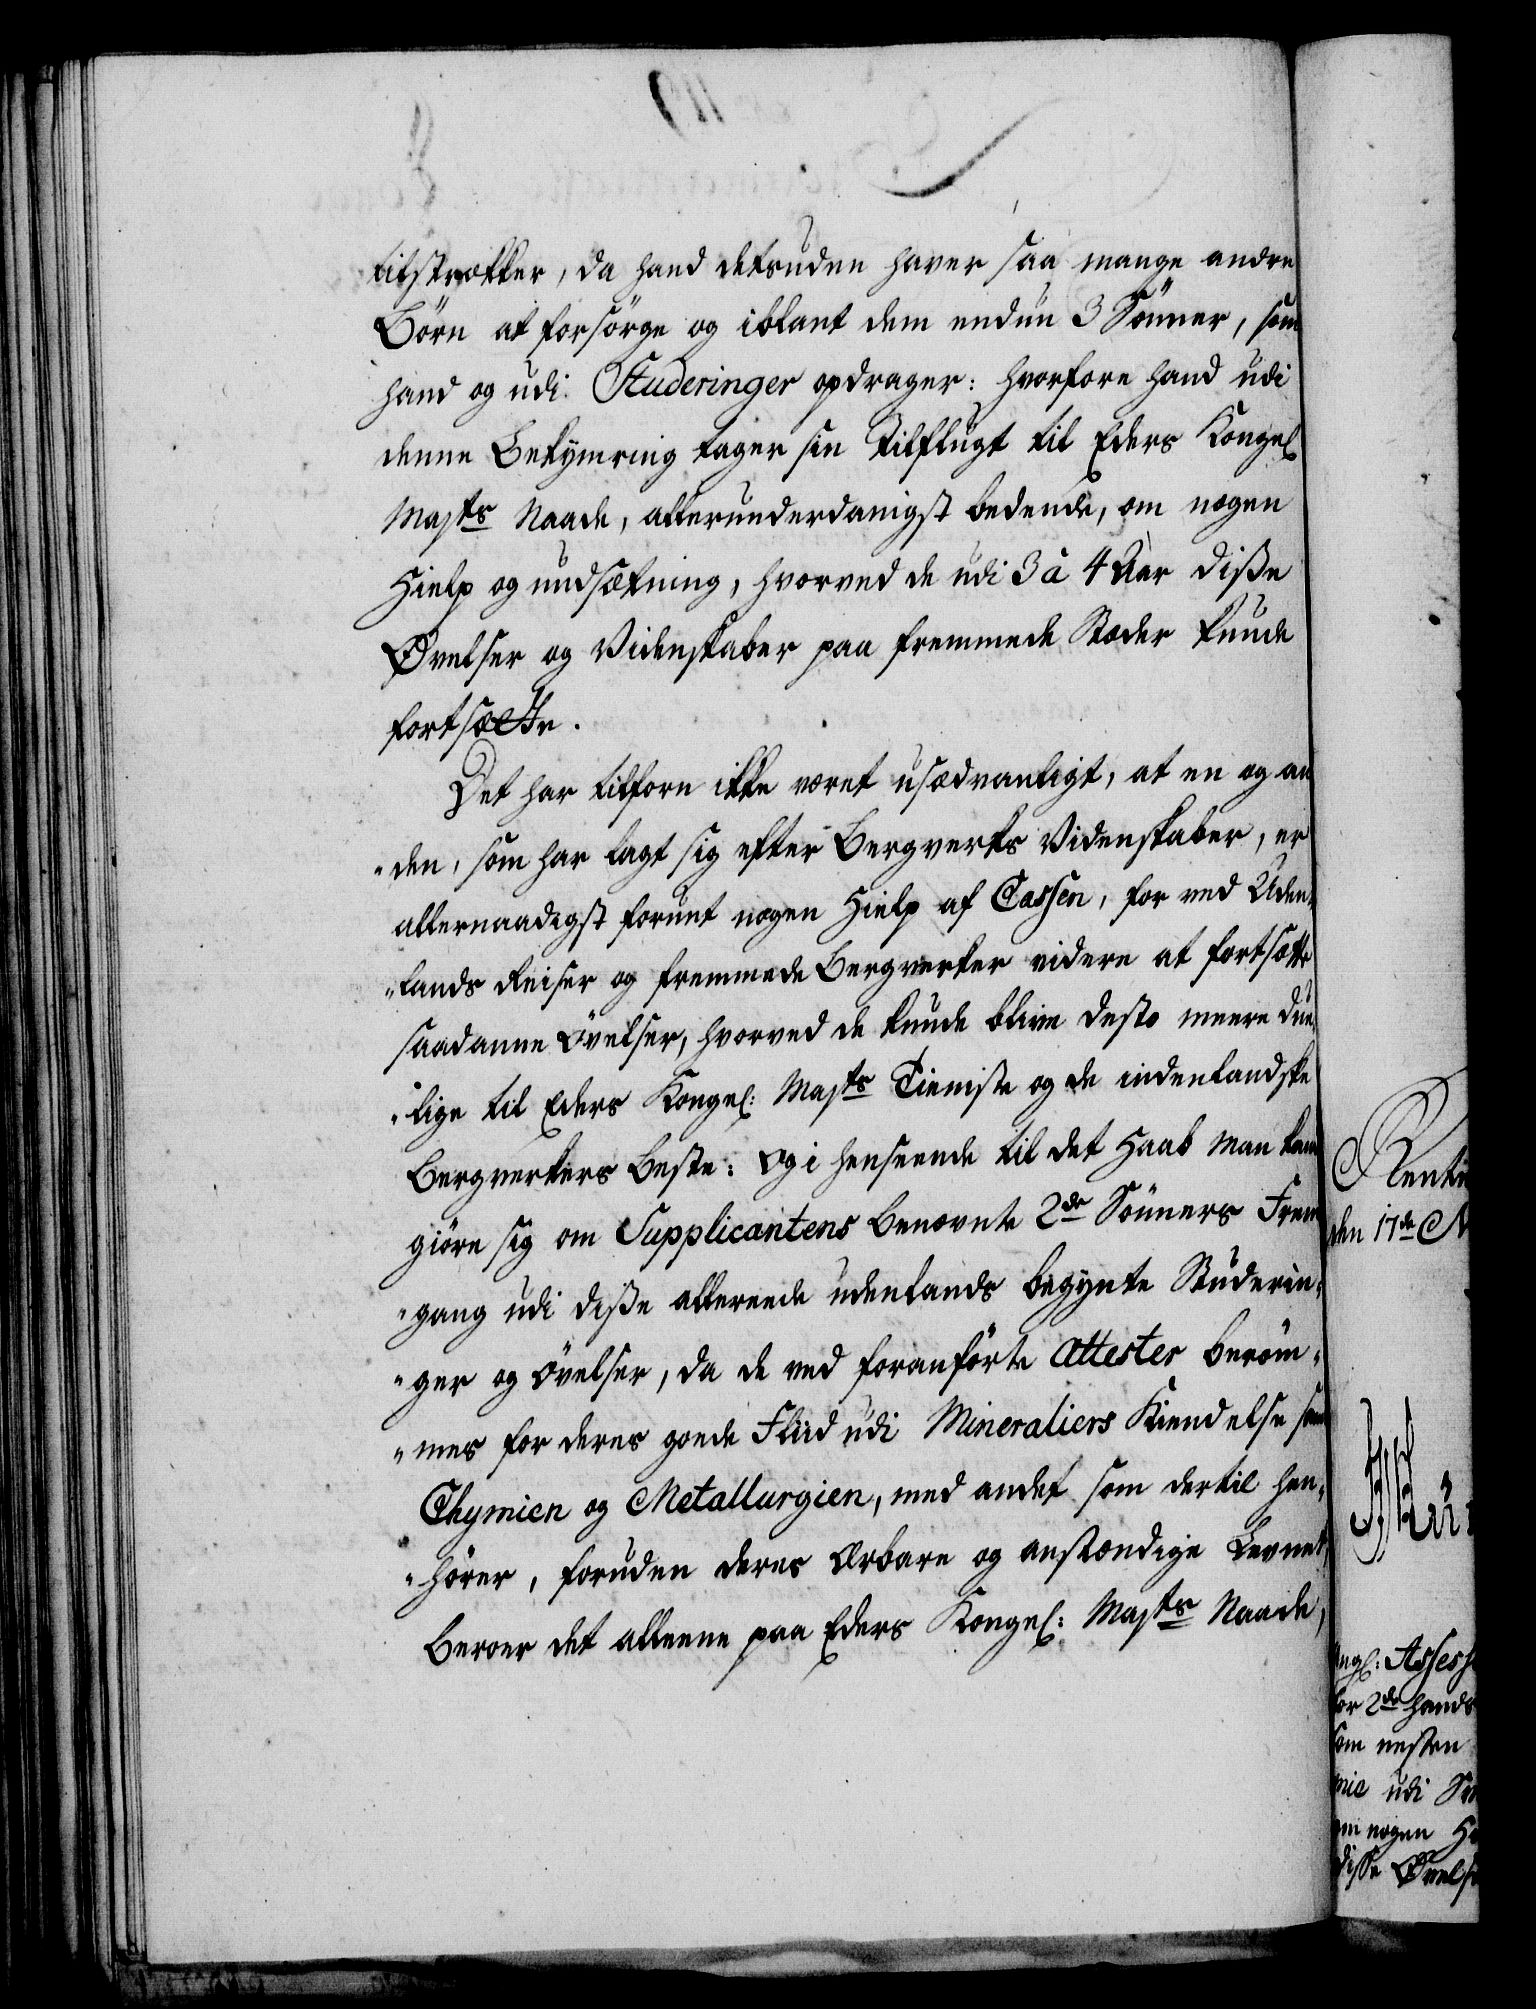 tilstrækker, da hand desuden haver saa mange andre
Börn at forsörge og iblant dem endnu 3 Sönner, som
hand og udi Studeringer opdrager: hvorfore hand udi
denne Bekymring tager sin Tilflugt til Eders Kongel
Majts Naade, allerunderdanigst bedende, om nogen
Hielp og undsætning, hvorved de udi 3 à 4 Aar disse
Øvelser og Videnskaber paa fremmede Stæder kunde
fortsætte.
Det har tilforn ikke været usædvanligt, at en og an
"den, som har lagt sig efter Bergverks Videnskaber, er
allernaadigst forunt nogen Hielp af Cassen, for ved Uden,
"lands Reiser og fremmede Bergverker videre at fortsætte
saadanne Övelser, hvorved de kunde blive desto meere due,
"lige til Eders Kongel: Majts Tieniste og de indenlandske
Bergverkers Beste: Og i henseende til det Haab man kand
giöre sig om Supplicantens Benævnte 2de Sönners Frem
"gang udi disse allereede udenlands begynte Studerin,
"ger og Övelser, da de ved foranförte Attester beröm,
"mes for deres goede Fliid udi Mineraliers Kiendelse samt
Chymien og Metallurgien, med andet som dertil hen,
"hörer, foruden deres Ærbare og anstændige Levnet,
Beroer det alleene paa Eders Kongel: Majts Naade,
den 17de
Assess
2de hands
som nesten
udi
nogen
disse